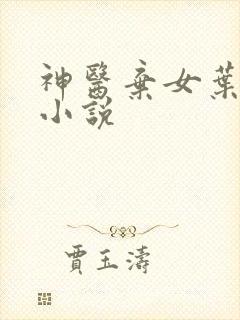 神醫棄女葉
小說
賈玉濤